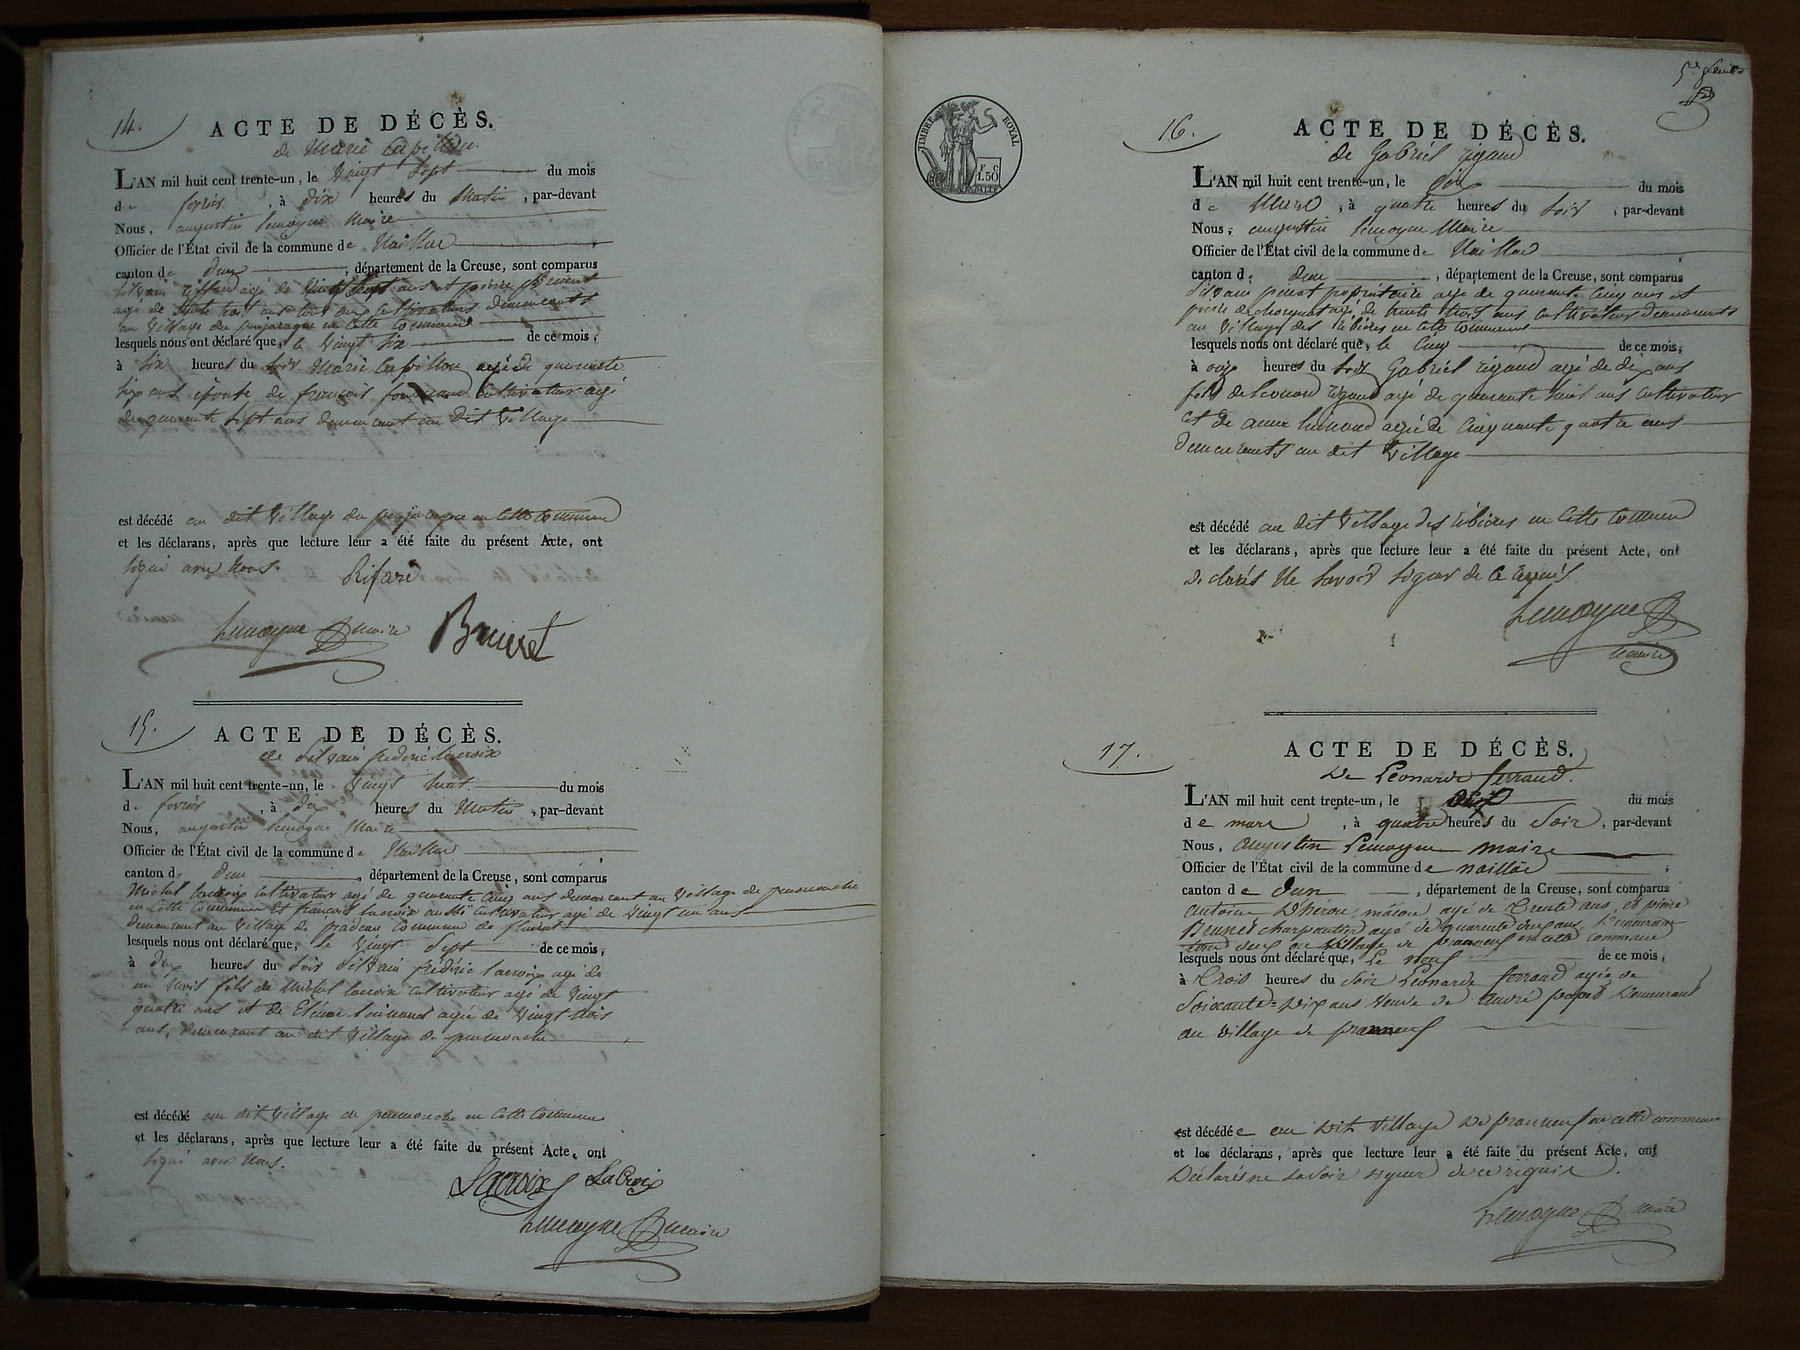 14.
ACTE DE DÉCÈS.
de Marie
L'AN mil huit cent trente-un, le Vingt Sept du mois
de fevrier, à dix heures du Matin, par-devant
Nous, augustin Lemoyne Maire
Officier de l'État civil de la commune de Naillac
canton de dun, département de la Creuse, sont comparus
Silvain agé de ans et pierre
agé de trente ans tous deux Cultivateurs demeurants
au Village du en Cette Commune
lesquels nous ont déclaré que, le Vingt Six de ce mois,
à Six heures du Soir Marie agée de quarente
Six ans épouse de francois Cultivateur agé
de quarente Sept ans demeurant au Dit Village
est décédé au dit Village du en Cette Commune
et les déclarans, après que lecture leur a été faite du présent Acte, ont
Signé avec Nous. Rifard
Lemoyne maire Brunet
15.
ACTE DE DÉCÈS.
de Silvain frédéric Lacroix
L'AN mil huit cent trente-un, le Vingt huit du mois
de fevrier, à dix heures du Matin, par-devant
Nous, augustin Lemoyne Maire
Officier de l'État civil de la commune de Naillac
canton de dun, département de la Creuse, sont comparus
Michel Lacroix Cultivateur agé de quarente Cinq ans demeurant au Village de
en Cette Commune Et francois Lacroix aussi Cultivateur agé de Vingt un ans
demeurant au Village de pradeau Commune de fleurat
lesquels nous ont déclaré que, le Vingt Sept de ce mois,
à heures du Soir Silvain frédéric Lacroix agé de
un fils de Michel Lacroix Cultivateur agé de Vingt
quatre ans et de agée de Vingt trois
ans, demeurant au dit Village de
est décédé au dit Village de en Cette Commune
et les déclarans, après que lecture leur a été faite du présent Acte, ont
Signé avec Nous.
Lacroix LaCroix
Lemoyne maire
TIMBRE ROYAL
F. C
1.50
5e feuillet
16.
ACTE DE DÉCÈS.
de Gabriel rigaud
L'AN mil huit cent trente-un, le du mois
de Mars, à quatre heures du Soir, par-devant
Nous, augustin Lemoyne Maire
Officier de l'État civil de la commune de Naillac
canton de dun, département de la Creuse, sont comparus
Silvain propriétaire agé de quarente Cinq ans et
pierre agé de trente trois ans Cultivateur demeurants
au Village des en Cette Commune
lesquels nous ont déclaré que, le Cinq de ce mois,
à onze heures du Soir Gabriel rigaud agé de dix ans
fils de Léonard rigaud agé de quarente huit ans Cultivateur
et de anne agée de Cinquante quatre ans
demeurants au dit Village
est décédé au dit Village des en Cette Commune
et les déclarans, après que lecture leur a été faite du présent Acte, ont
declarés Ne Savoir Signer de Ce requis.
Lemoyne
maire
17.
ACTE DE DÉCÈS.
De Léonarde ferraud.
L'AN mil huit cent trente-un, le du mois
de mars, à quatre heures du Soir, par-devant
Nous, augustin Lemoyne maire
Officier de l'État civil de la commune de naillac
canton de dun, département de la Creuse, sont comparus
antoine maçon, agé de Trente ans, et pierre
Brunet charpentier agé de quarante deux ans, Demeurant
tous deux au Village de pranneuf en cette commune
lesquels nous ont déclaré que, Le neuf de ce mois,
à Trois heures du Soir Léonarde ferraud agée de
Soixante=Dix ans Veuve de andré Demeurant
au village de pranneuf
est décédée au Dit Village De pranneuf en cette commune
et les déclarans, après que lecture leur a été faite du présent Acte, ont
Déclarés ne savoir signer de ce requis.
Lemoyne maire